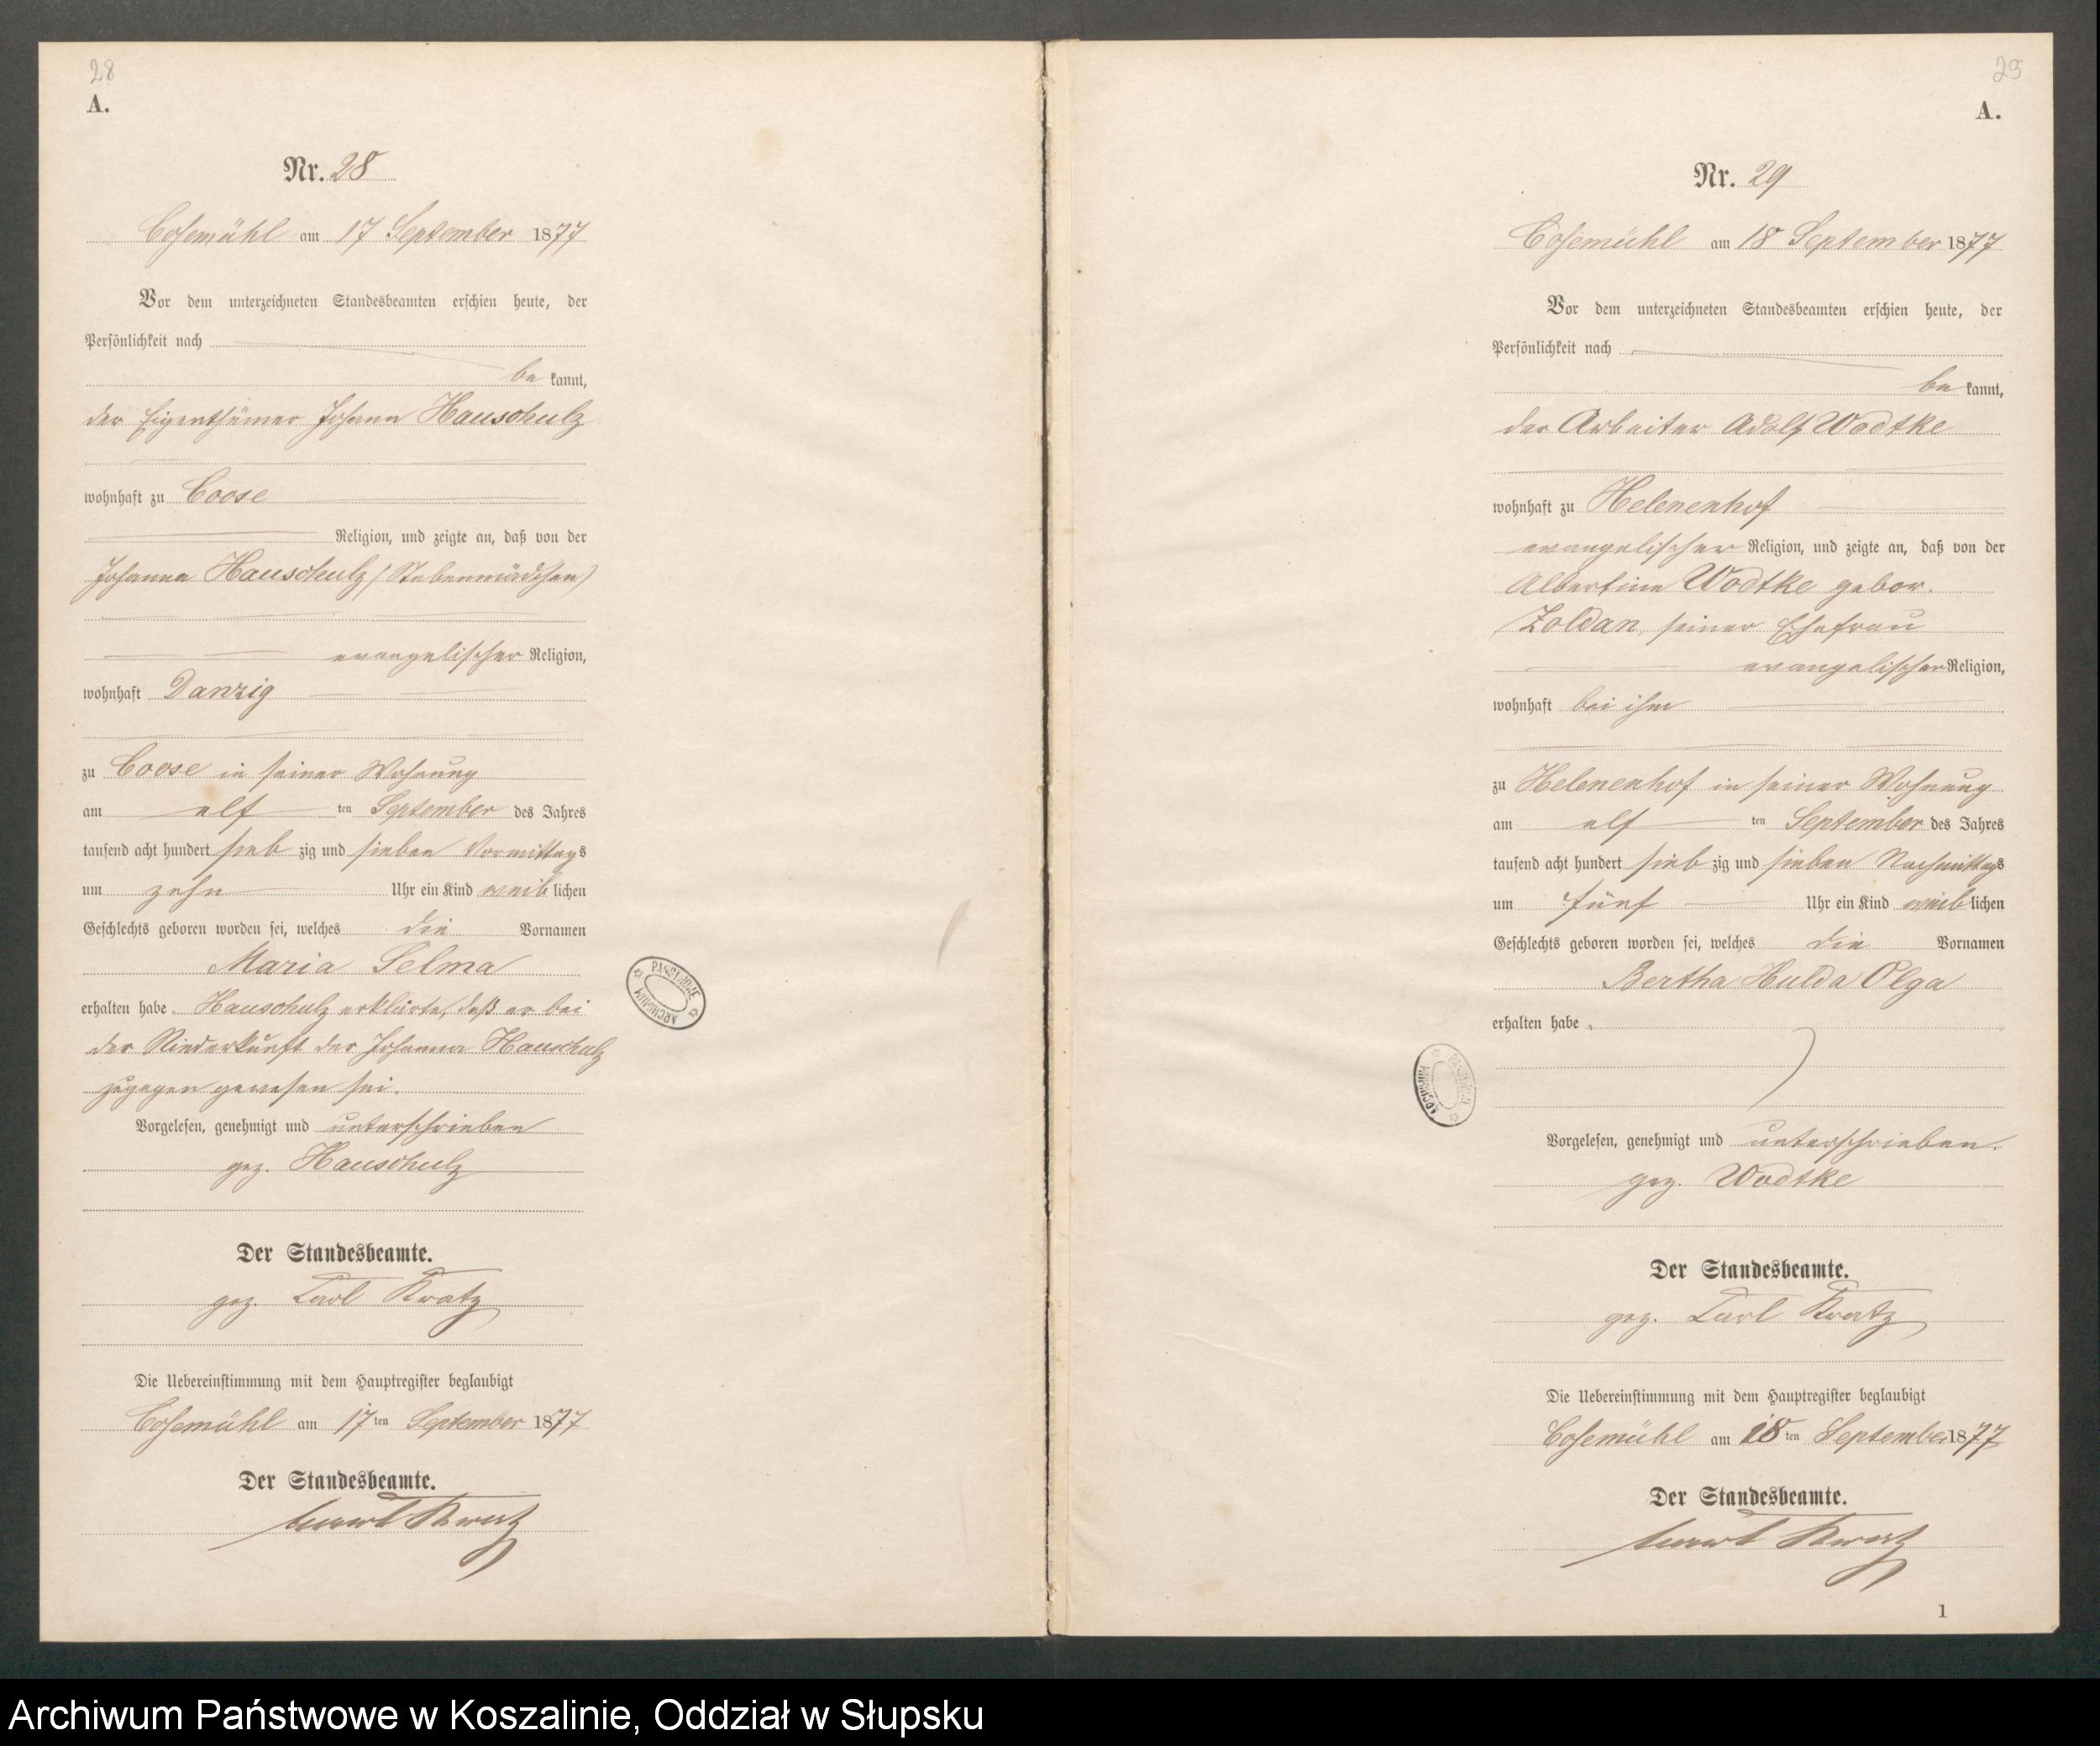 28
A.
Nr. 28
Cosemühl am 17 September 1877
Vor dem unterzeichneten Standesbeamten erschien heute, der
Persönlichkeit nach
be kannt,
der Eigenthümer Johann Hauschulz
wohnhaft zu Coose
Religion, und zeigte an, daß von der
Johanna Hauschulz (Stubenmädchen)
evangelischer Religion,
wohnhaft Danzig
zu Coose in seiner Wohnung
am elf ten September des Jahres
tausend acht hundert sieb zig und sieben Vormittags
um zehn Uhr ein Kind weib lichen
Geschlechts geboren worden sei, welches die Vornamen
Maria Selma
erhalten habe. Hauschulz erklärte, daß er bei
der Niederkunft der Johanna Hauschulz
zugegen gewesen sei.
Vorgelesen, genehmigt und unterschrieben
gez. Hauschulz
Der Standesbeamte.
gez. Carl Kratz
Die Uebereinstimmung mit dem Hauptregister beglaubigt
Cosemühl am 17ten September 1877
Der Standesbeamte.
Kratz
ARCHIWUM PAŃSTWOWE
29
A.
Nr. 29
Cosemühl am 18 September 1877
Vor dem unterzeichneten Standesbeamten erschien heute, der
Persönlichkeit nach
be kannt,
der Arbeiter Adolf Wodtke
wohnhaft zu Helenenhof
evangelischer Religion, und zeigte an, daß von der
Albertine Wodtke gebor.
Zoldan, seiner Ehefrau
evangelischer Religion,
wohnhaft bei ihm
zu Helenenhof in seiner Wohnung
am elf ten September des Jahres
tausend acht hundert sieb zig und sieben Nachmittags
um fünf Uhr ein Kind weib lichen
Geschlechts geboren worden sei, welches die Vornamen
Bertha Hulda Olga
erhalten habe.
Vorgelesen, genehmigt und unterschrieben.
gez. Wodtke
Der Standesbeamte.
gez. Carl Kratz
Die Uebereinstimmung mit dem Hauptregister beglaubigt
Cosemühl am 18ten September 1877
Der Standesbeamte.
Kratz
1
ARCHIWUM PAŃSTWOWE
Archiwum Państwowe w Koszalinie, Oddział w Słupsku